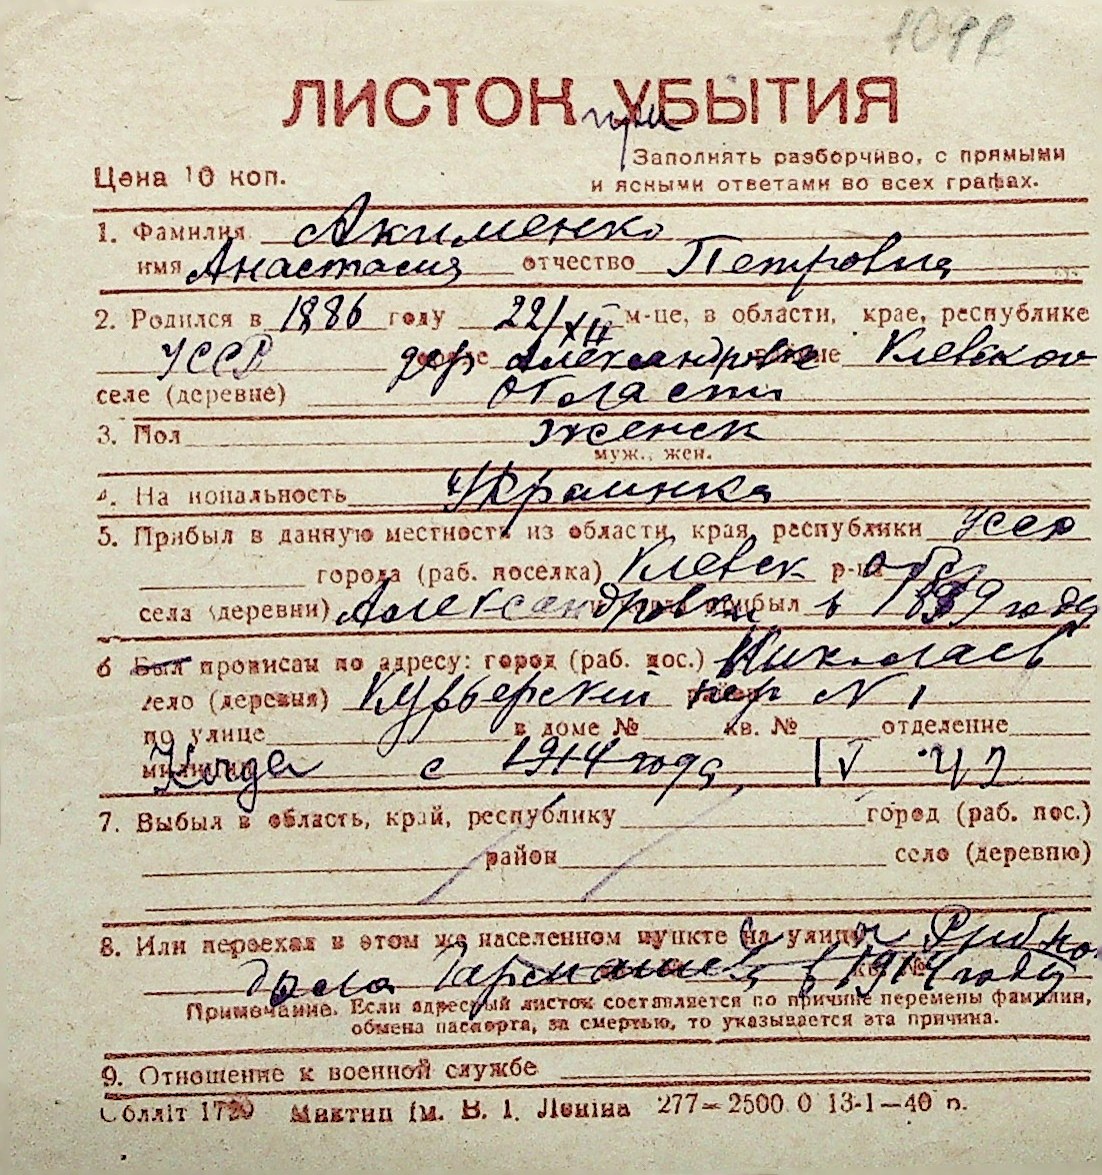 ЛИСТОК УБЫТИЯ
при
Цена 10 коп.
Заполнять разборчиво, с прямыми
и ясными ответами во всех графах.
1. Фамилия Акименко
имя Анастасия отчество Петровна
2. Родился в 1886 году 22/XII м-це, в области, крае, республике
УССР дер Александровке Киевской
селе (деревне) области
3. Пол женск
муж., жен.
4. На иональность Украинка
5. Прибыл в данную местность из области, края, республики УССР
города (раб. поселка) Киевск р-на обл
села (деревни) Александровки прибыл в 1889 году
6 Был прописан по адресу: город (раб. пос.) Николаев
село (деревня) Курьерский пер N 1
по улице в доме № кв. № отделение
милиции Когда с 1914 года IV
7. Выбыл в область, край, республику город (раб. пос.)
район село (деревню)
8. Или переехал в этом же населенном пункте на улицу
была в 1914 году
Примечание. Если адресный листок составляется по причине перемены фамилии,
обмена паспорта, за смертью, то указывается эта причина.
9. Отношение к военной службе
Облліт 1720 Мактип ім. В. І. Леніна 277—2500 0 13-1—40 п.